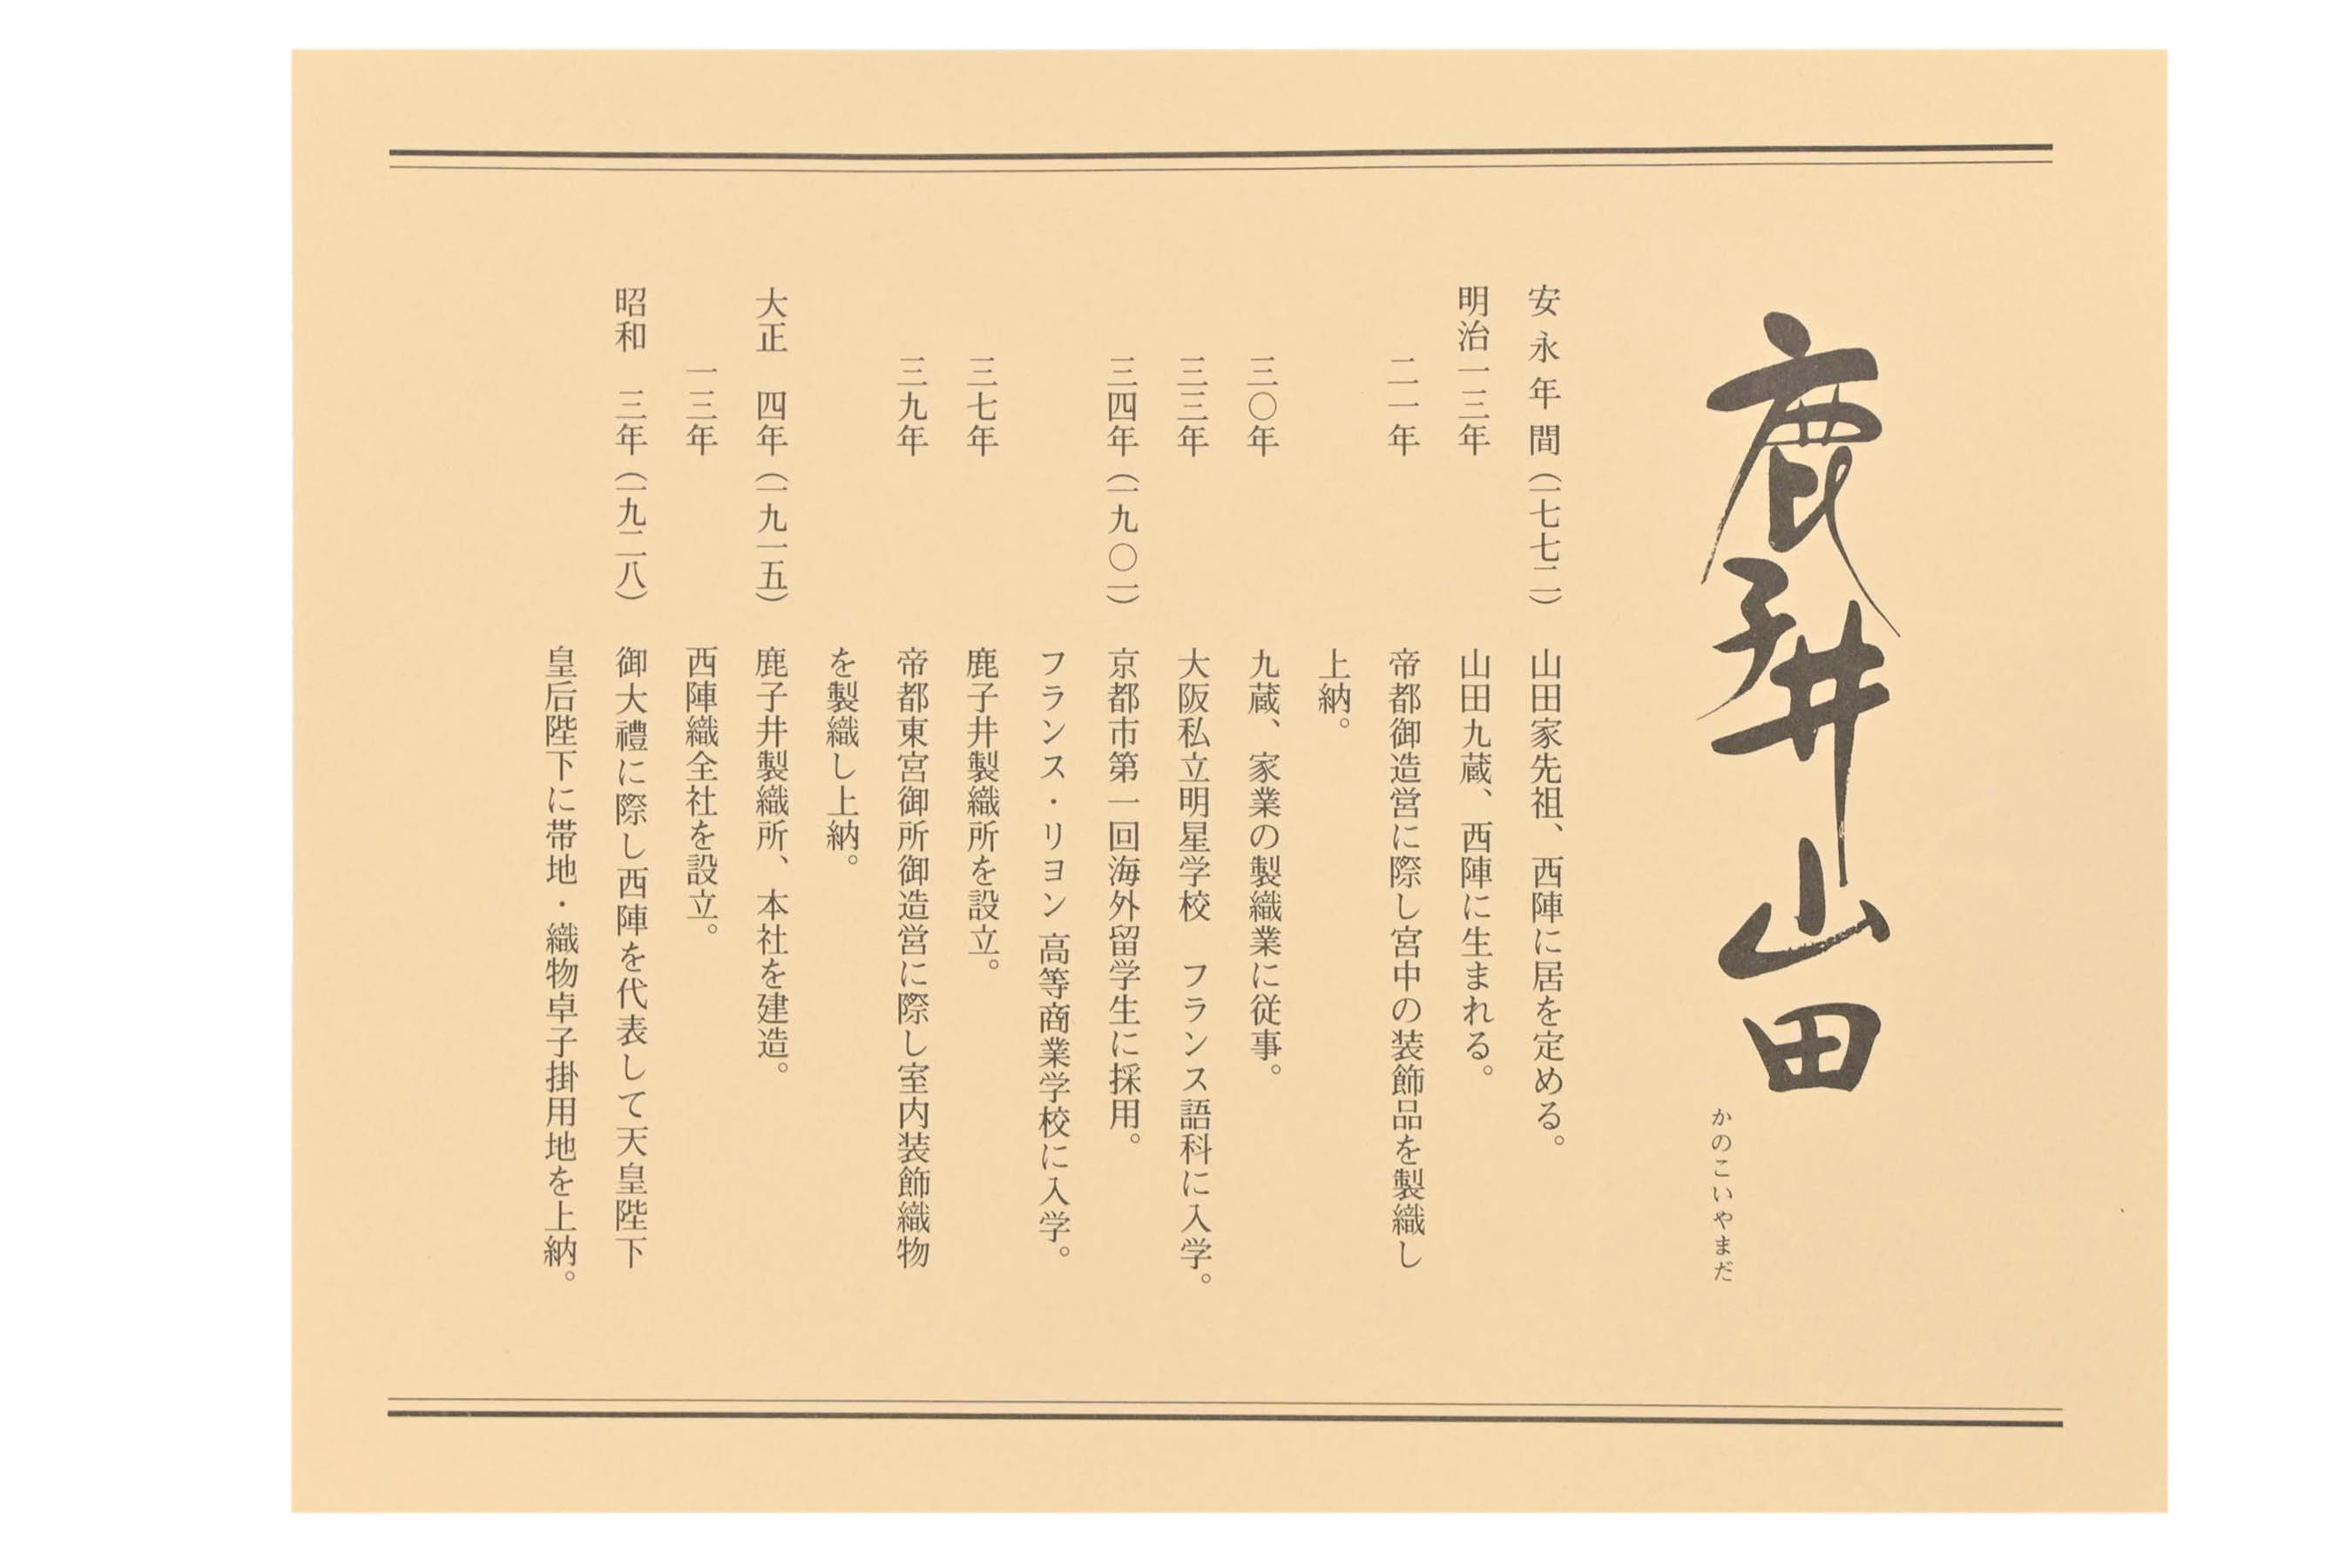 鹿子井山田
かのこいやまだ
安永年間（一七七二） 山田家先祖、西陣に居を定める。
明治一三年 山田九蔵、西陣に生まれる。
二一年 帝都御造営に際し宮中の装飾品を製織し
上納。
三〇年 九蔵、家業の製織業に従事。
三三年 大阪私立明星学校 フランス語科に入学。
三四年（一九〇一） 京都市第一回海外留学生に採用。
フランス・リヨン高等商業学校に入学。
三七年 鹿子井製織所を設立。
三九年 帝都東宮御所御造営に際し室内装飾織物
を製織し上納。
大正 四年（一九一五） 鹿子井製織所、本社を建造。
一三年 西陣織全社を設立。
昭和 三年（一九二八） 御大禮に際し西陣を代表して天皇陛下
皇后陛下に帯地・織物卓子掛用地を上納。